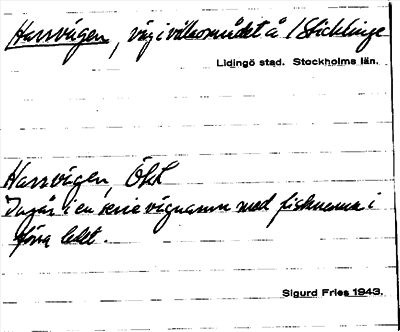 Harrvägen, väg i villaområdet å / Sticklinge
Lidingö stad. Stockholms län.
Harrvägen, Ökt
Ingår i en serie vägnamn med fisknamn i
förra ledet.
Sigurd Fries 1943.